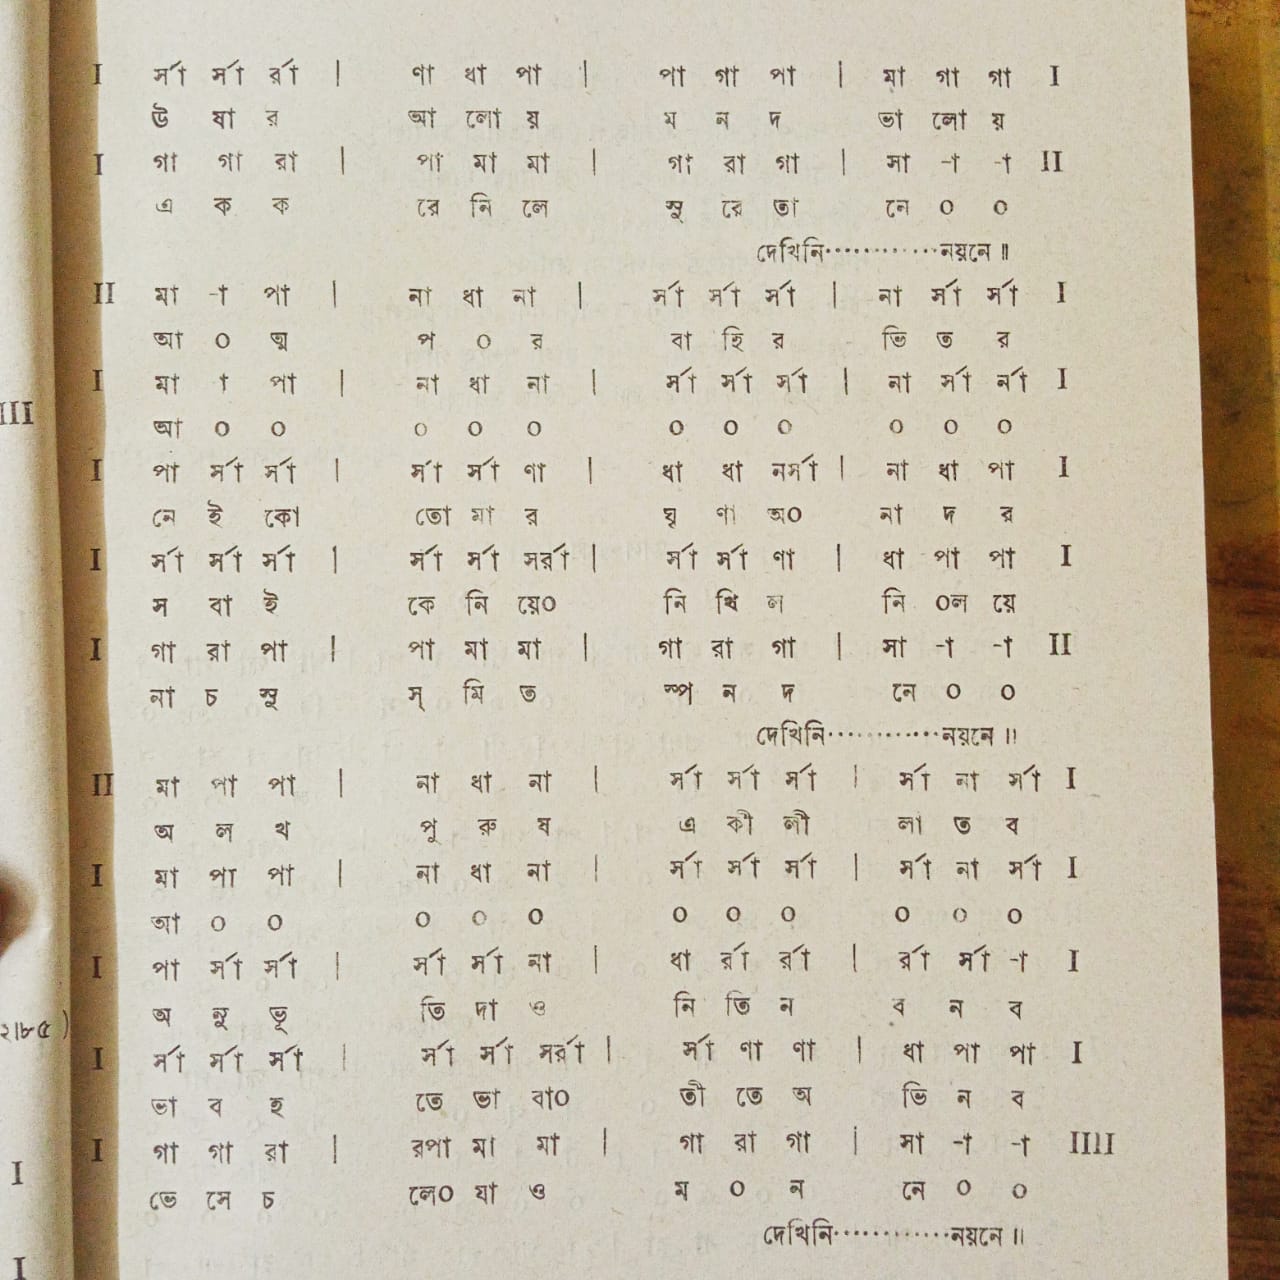 I র্সা র্সা র্রা | ণা ধা পা | পা গা পা | মা গা গা I
ঊ ষা র আ লো য় ম ন দ ভা লো য়
I গা গা রা | পা মা মা | গা রা গা | সা -া -া II
এ ক ক রে নি লে সু রে তা নে ০ ০
দেখিনি············নয়নে ॥
II মা -া পা | না ধা না | র্সা র্সা র্সা | না র্সা র্সা I
আ ০ ত্ম প ০ র বা হি র ভি ত র
I মা া পা | না ধা না | র্সা র্সা র্সা | না র্সা র্না I
আ ০ ০ ০ ০ ০ ০ ০ ০ ০ ০ ০
III
I পা র্সা র্সা | র্সা র্সা ণা | ধা ধা নর্সা | না ধা পা I
নে ই কো তো মা র ঘৃ ণা অ০ না দ র
I র্সা র্সা র্সা | র্সা র্সা সর্রা | র্সা র্সা ণা | ধা পা পা I
স বা ই কে নি য়ে০ নি খি ল নি ০ল য়ে
I গা রা পা | পা মা মা | গা রা গা | সা -া -া II
না চ সু স্ মি ত স্প ন দ নে ০ ০
দেখিনি············নয়নে ॥
II মা পা পা | না ধা না | র্সা র্সা র্সা | র্সা না র্সা I
অ ল খ পু রু ষ এ কী লী লা ত ব
I মা পা পা | না ধা না | র্সা র্সা র্সা | র্সা না র্সা I
আ ০ ০ ০ ০ ০ ০ ০ ০ ০ ০ ০
I পা র্সা র্সা | র্সা র্সা না | ধা র্রা র্রা | র্রা র্সা -া I
অ নু ভূ তি দা ও নি তি ন ব ন ব
২৷৮৫ )
I র্সা র্সা র্সা | র্সা র্সা সর্রা | র্সা ণা ণা | ধা পা পা I
ভা ব হ তে ভা বা০ তী তে অ ভি ন ব
I গা গা রা | রপা মা মা | গা রা গা | সা -া -া IIII
I
ভে সে চ লে০ যা ও ম ০ ন নে ০ ০
দেখিনি············নয়নে ॥
I